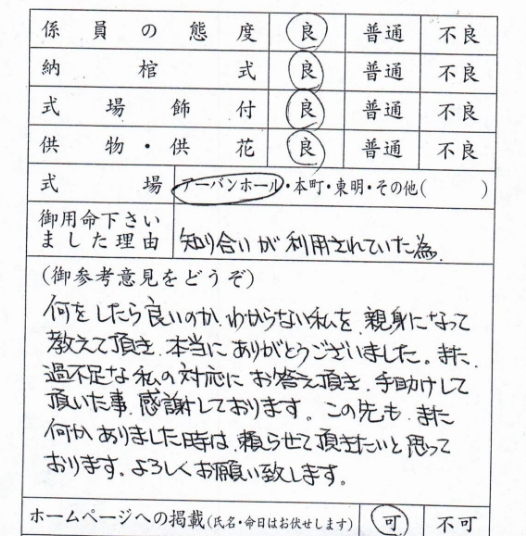 係員の態度 良 普通 不良
納棺式 良 普通 不良
式場飾付 良 普通 不良
供物・供花 良 普通 不良
式場 アーバンホール・本町・東明・その他( )
御用命下さい
ました理由 知り合いが利用されていた為.
(御参考意見をどうぞ)
何をしたら良いのか、わからない私を、親身になって
教えて頂き、本当にありがとうございました。また、
過不足な私の対応にお答え頂き、手助けして
頂いた事、感謝しております。この先も、また
何かありました時は、頼らせて頂きたいと思って
おります。よろしくお願い致します。
ホームページへの掲載(氏名・命日はお伏せします) 可 不可